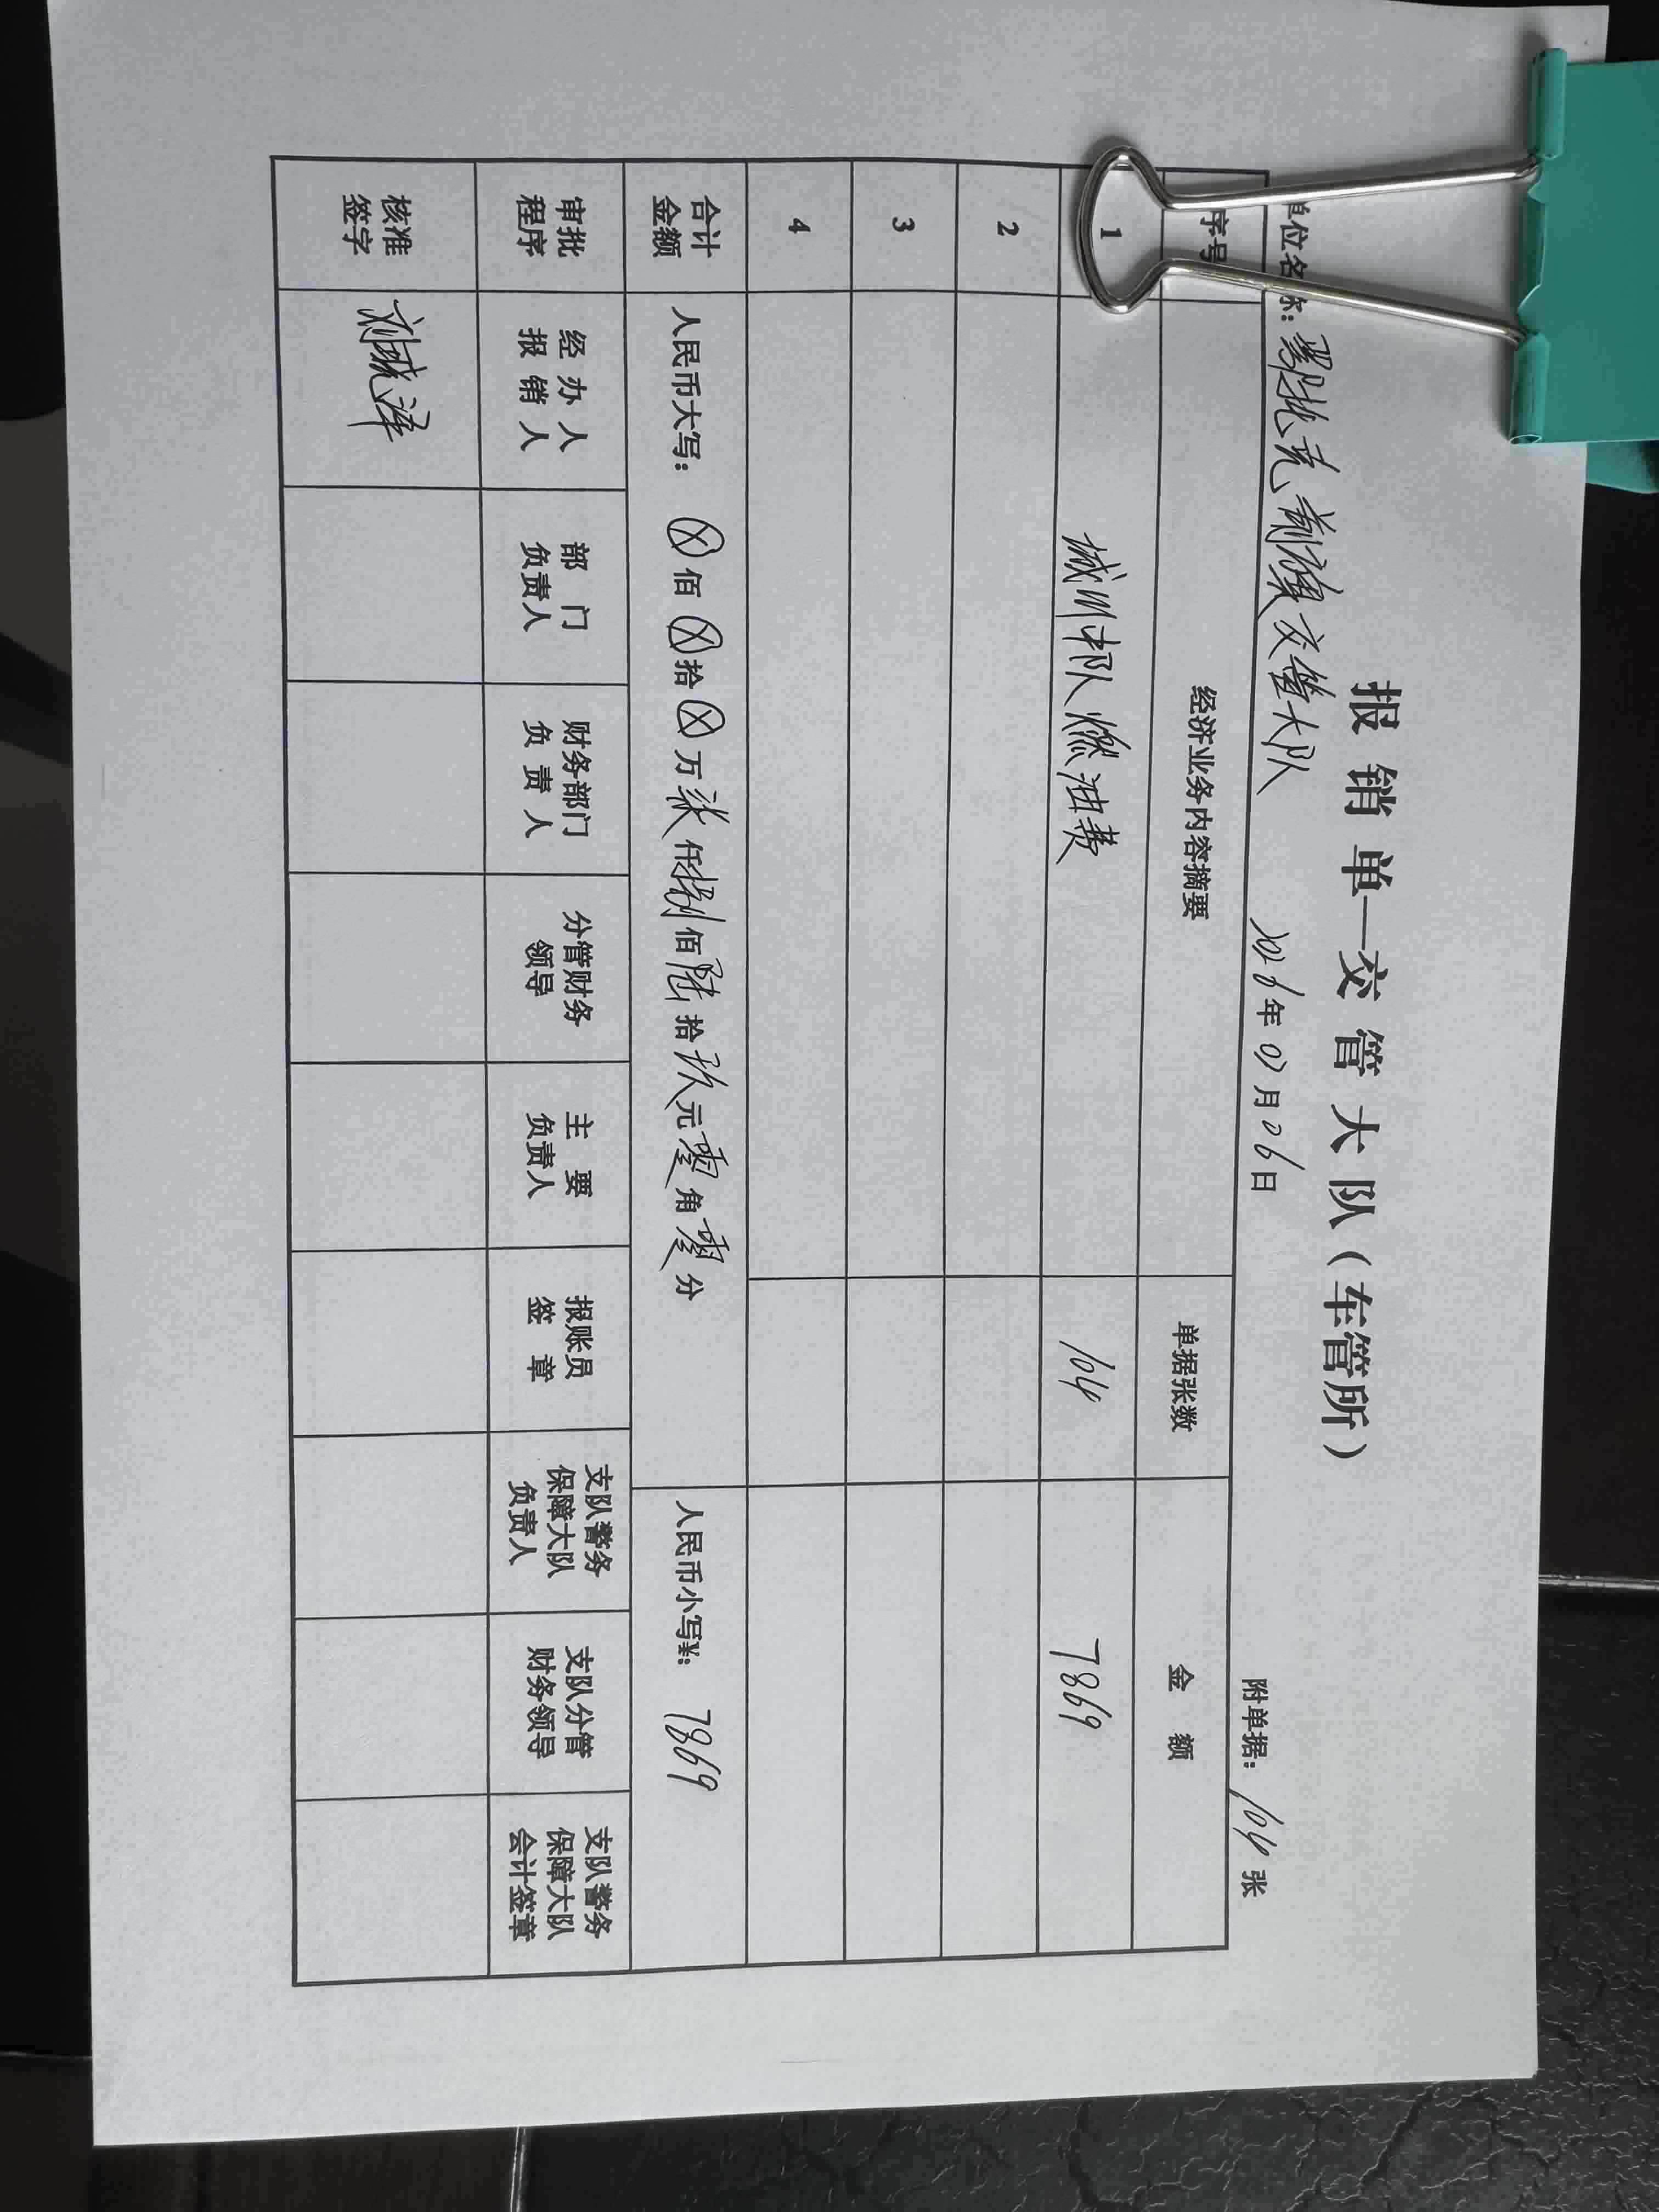 报销单—交管大队（车管所）
单位名称：鄂托克前旗交管大队 年07月06日 附单据：104张
序号 经济业务内容摘要 单据张数 金额
1 城川中队燃油费 104 7869
2
3
4
合计金额 人民币大写：ⓧ佰ⓧ拾ⓧ万柒仟捌佰陆拾玖元零角零分 人民币小写¥：7869
审批程序 经办人报销人 部门负责人 财务部门负责人 分管财务领导 主要负责人 报账员签章 支队警务保障大队负责人 支队分管财务领导 支队警务保障大队会计签章
核准签字